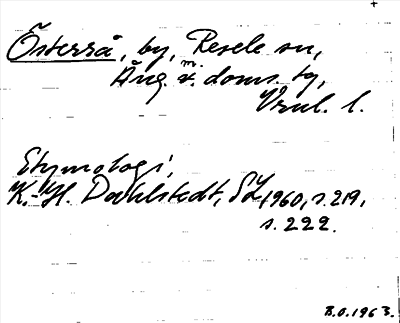 Österrå, by, Resele sn,
Ång. v. m. doms. tg,
Vnl. l.
Etymologi,
K.-H. Dahlstedt, SL 1960, s. 219,
s. 222.
B.O. 1963.